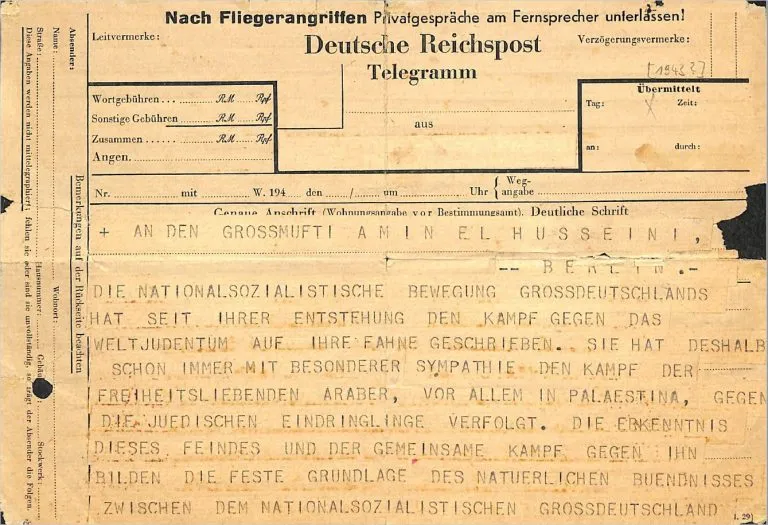 Nach Fliegerangriffen Privatgespräche am Fernsprecher unterlassen!
Leitvermerke:
Deutsche Reichspost
Verzögerungsvermerke:
Telegramm
[1943?]
Wortgebühren ... RM Rpf
Sonstige Gebühren RM Rpf
Zusammen ... RM Rpf
Angen.
aus
Übermittelt
Tag: Zeit:
an: durch:
Nr. mit W. 194 den / um Uhr { Weg-angabe
Genaue Anschrift (Wohnungsangabe vor Bestimmungsamt). Deutliche Schrift
+ AN DEN GROSSMUFTI AMIN EL HUSSEINI,
-- BERLIN.-
DIE NATIONALSOZIALISTISCHE BEWEGUNG GROSSDEUTSCHLANDS
HAT SEIT IHRER ENTSTEHUNG DEN KAMPF GEGEN DAS
WELTJUDENTUM AUF IHRE FAHNE GESCHRIEBEN. SIE HAT DESHALB
SCHON IMMER MIT BESONDERER SYMPATHIE DEN KAMPF DER
FREIHEITSLIEBENDEN ARABER, VOR ALLEM IN PALAESTINA, GEGEN
DIE JUEDISCHEN EINDRINGLINGE VERFOLGT. DIE ERKENNTNIS
DIESES FEINDES UND DER GEMEINSAME KAMPF GEGEN IHN
BILDEN DIE FESTE GRUNDLAGE DES NATUERLICHEN BUENDNISSES
ZWISCHEN DEM NATIONALSOZIALISTISCHEN GROSSDEUTSCHLAND
Bemerkungen auf der Rückseite beachten
Absender:
Name: Wohnort:
Straße: Hausnummer: Gebäu Stockwerk:
Diese Angaben werden nicht mittelegraphiert; fehlen sie oder sind sie unvollständig, so trägt der Absender die Folgen.